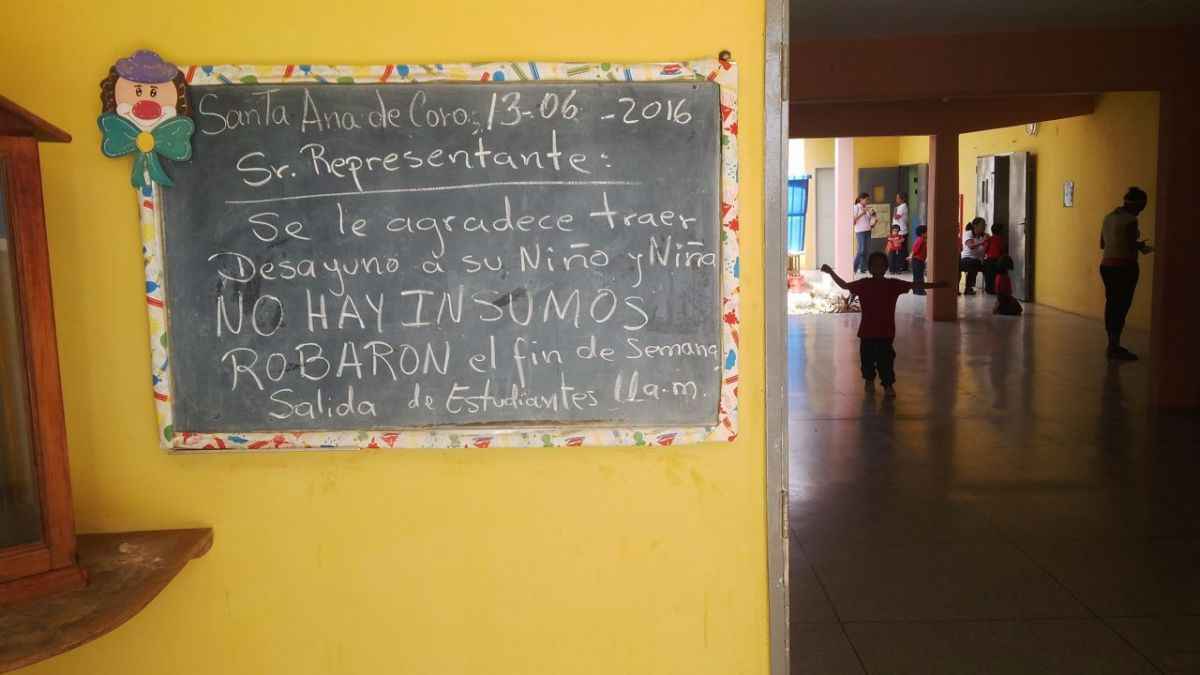 Santa Ana de Coro; 13-06-2016
Sr. Representante:
Se le agradece traer
Desayuno a su Niño y Niña
NO HAY INSUMOS
ROBARON el fin de semana
Salida de Estudiantes 11a.m.